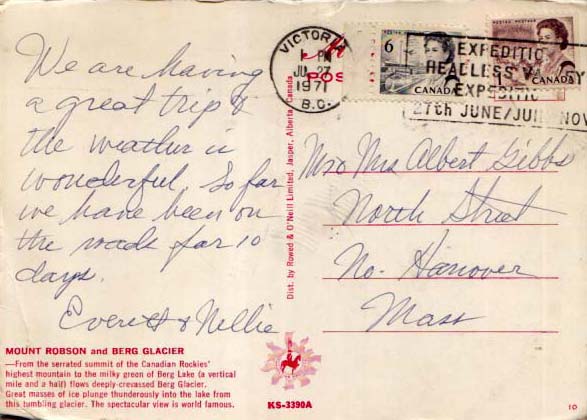 We are having
a great trip &
the weather is
wonderful. So far
we have been on
the roads for 10
days.
Everett & Nellie
MOUNT ROBSON and BERG GLACIER
—From the serrated summit of the Canadian Rockies'
highest mountain to the milky green of Berg Lake (a vertical
mile and a half) flows deeply-crevassed Berg Glacier.
Great masses of ice plunge thunderously into the lake from
this tumbling glacier. The spectacular view is world famous.
Dist. by Rowed & O'Neill Limited, Jasper, Alberta, Canada
KS-3390A
POS
VICTORIA
PM
1971
B.C.
POSTES POSTAGE
6
CANADA
POSTES POSTAGE
CANADA
EXPEDITIO
HEADLESS VALLEY
EXPEDITIO
27th JUNE/JUIN NOV
Mr & Mrs Albert Gibbs
North Street
No. Hanover
Mass
10